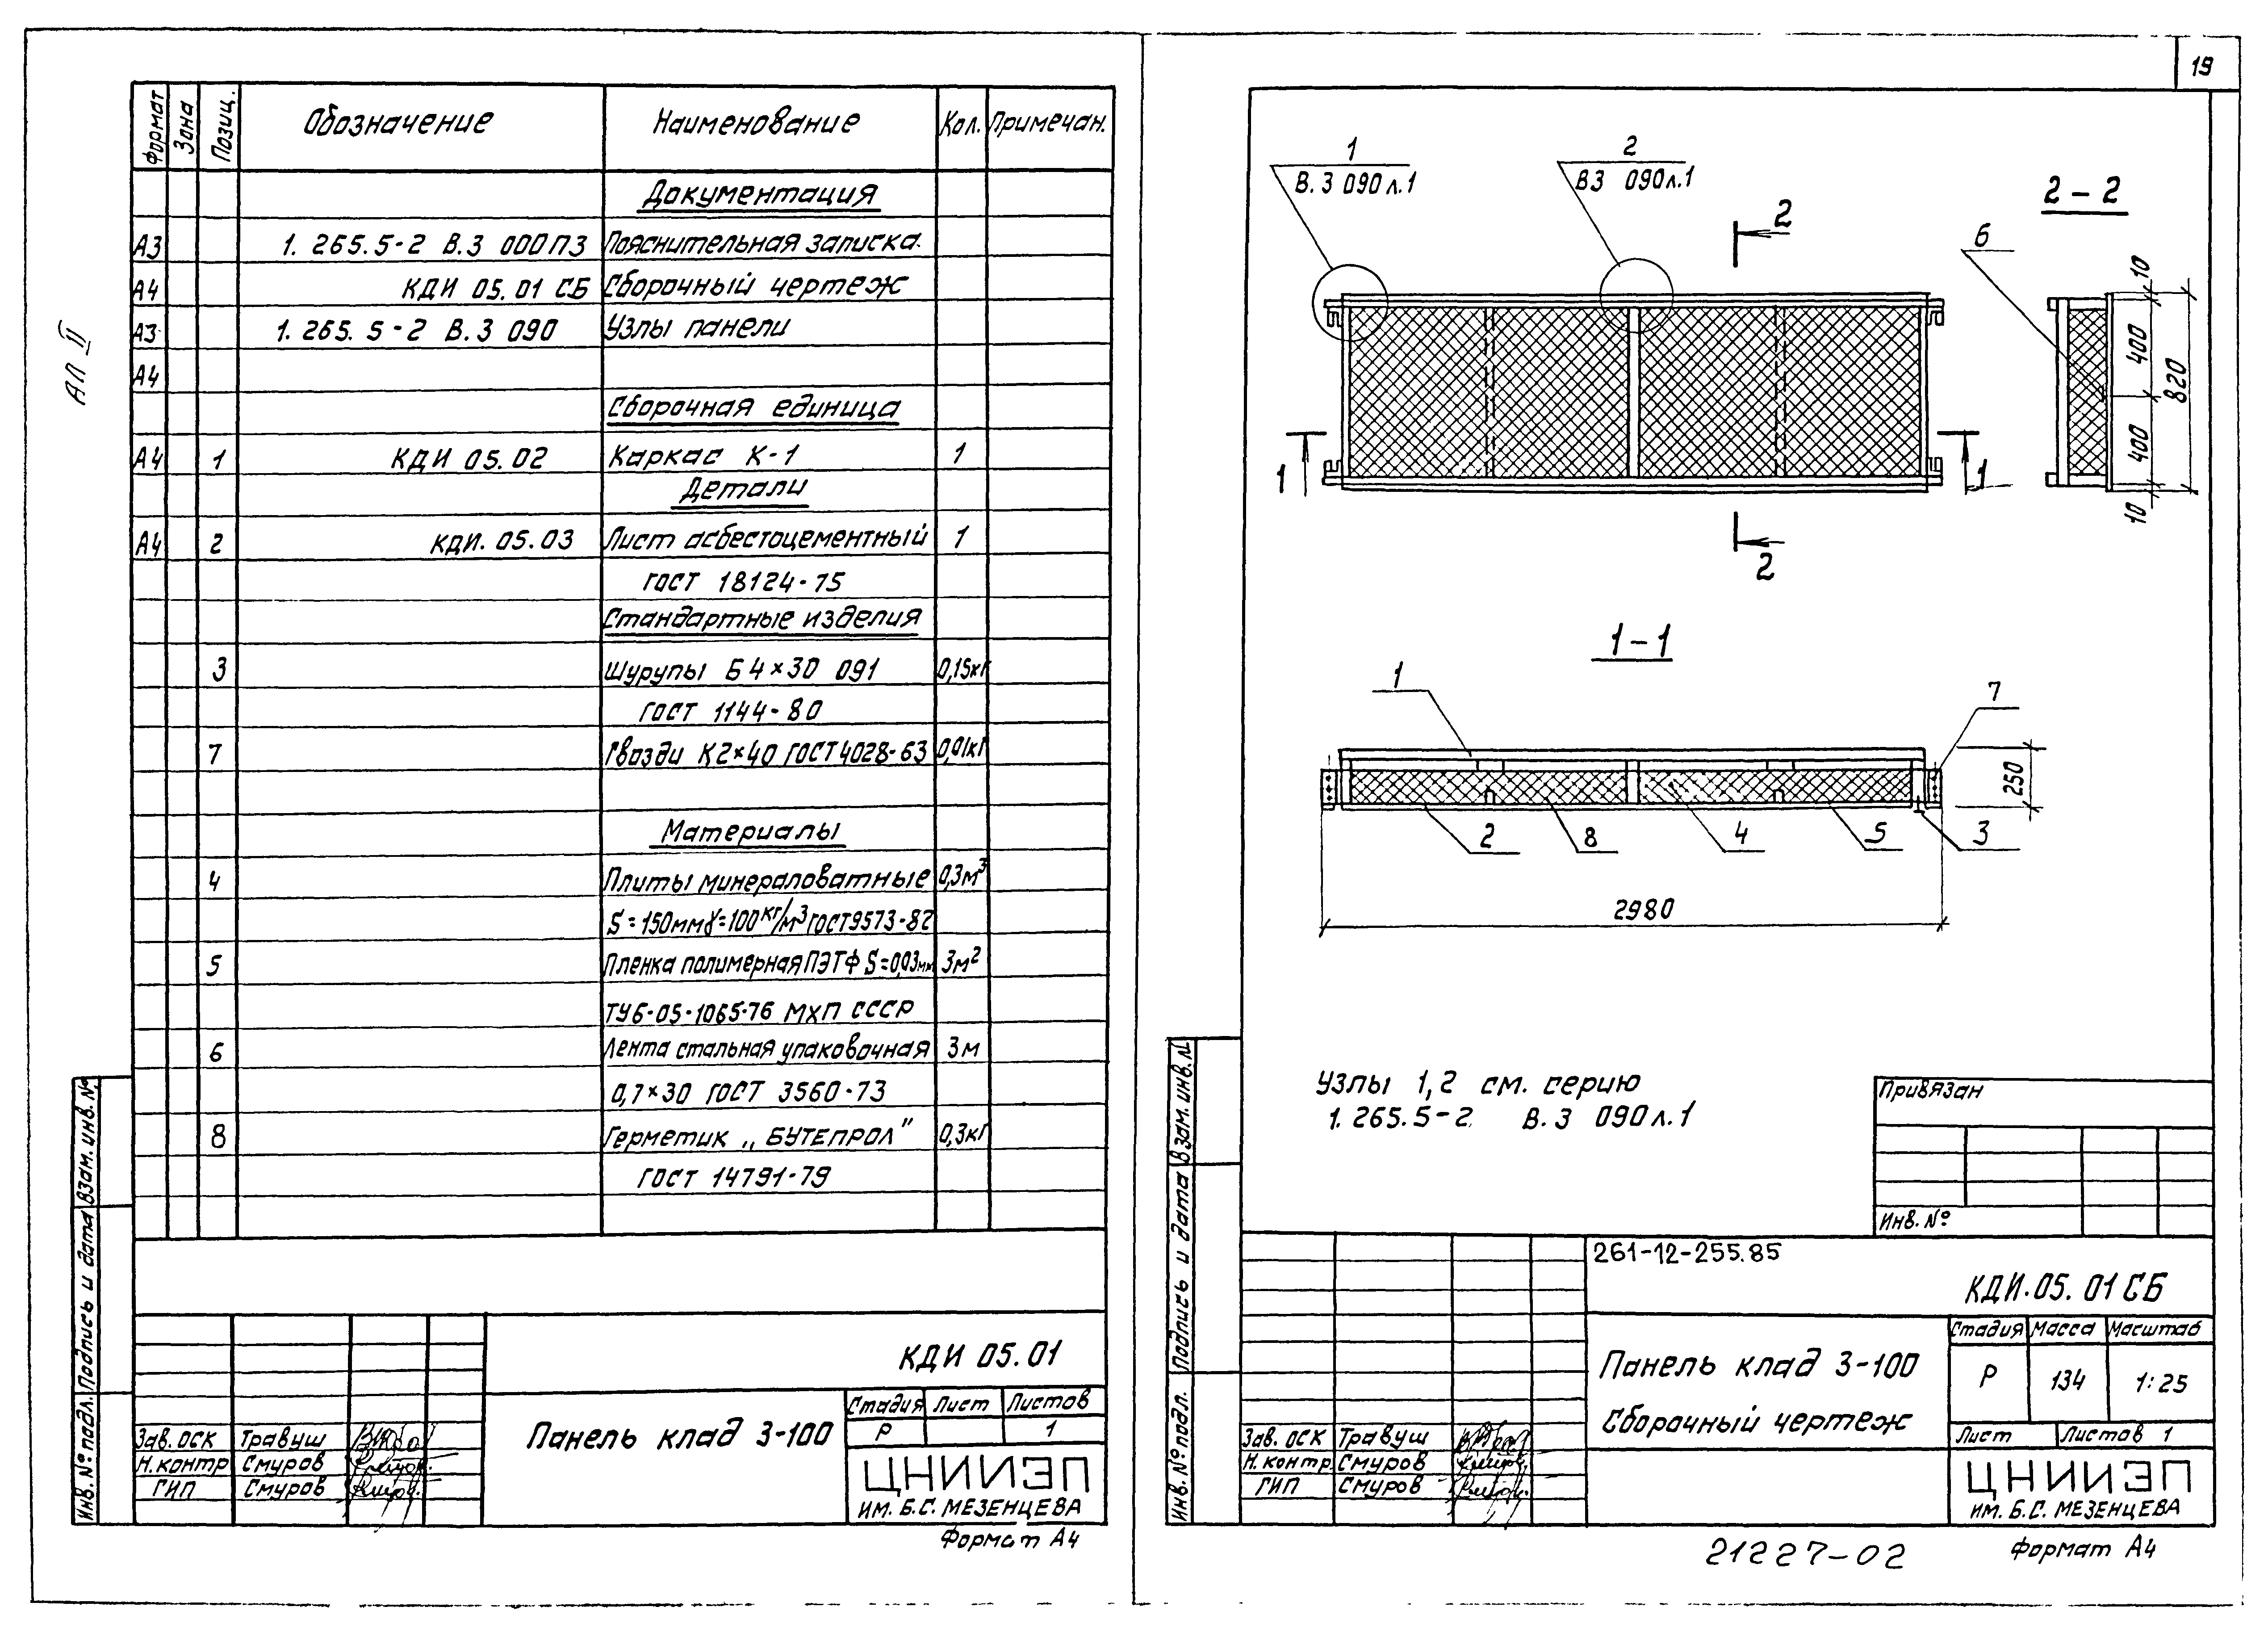 АЛ II
Формат Зона Позиц. Обозначение Наименование Кол. Примечан.
Документация
А3 1.265.5-2 В.3 000ПЗ Пояснительная записка.
А4 КДИ 05.01 СБ Сборочный чертеж
А3 1.265.5-2 В.3 090 Узлы панели
А4
Сборочная единица
А4 1 КДИ 05.02 Каркас К-1 1
Детали
А4 2 КДИ. 05.03 Лист асбестоцементный 1
ГОСТ 18124-75
Стандартные изделия
3 Шурупы Б 4×30 091 0,15кг
ГОСТ 1144-80
7 Гвозди К2×40 ГОСТ 4028-63 0,01кг
Материалы
4 Плиты минераловатные 0,3м³
S=150мм γ=100кг/м³ ГОСТ 9573-82
5 Пленка полимерная ПЭТФ S=0,03мм 3м²
ТУ6-05-1065-76 МХП СССР
6 Лента стальная упаковочная 3м
0,7×30 ГОСТ 3560-73
8 Герметик „БУТЕПРОЛ" 0,3кг
ГОСТ 14791-79
Инв. № подл. Подпись и дата Взам. инв. №
КДИ 05.01
Панель клад 3-100
Стадия Лист Листов
Р 1
Зав. ОСК Травуш
Н.контр Смуров
ГИП Смуров
ЦНИИЭП
ИМ. Б.С. МЕЗЕНЦЕВА
Формат А4
19
1
В.3 090 л.1
2
В3 090л.1
2
2
1
1
2-2
6
10
400
400
10
820
1-1
1
7
250
2
8
4
5
3
2980
Узлы 1,2 см. серию
1.265.5-2 В.3 090 л.1
Привязан
Инв. №
Инв. № подл. Подпись и дата Взам. инв. №
261-12-255.85
КДИ.05.01 СБ
Панель клад 3-100
Сборочный чертеж
Стадия Масса Масштаб
Р 134 1:25
Лист Листов 1
Зав. ОСК Травуш
Н.контр. Смуров
ГИП Смуров
ЦНИИЭП
ИМ. Б.С. МЕЗЕНЦЕВА
21227-02
Формат А4